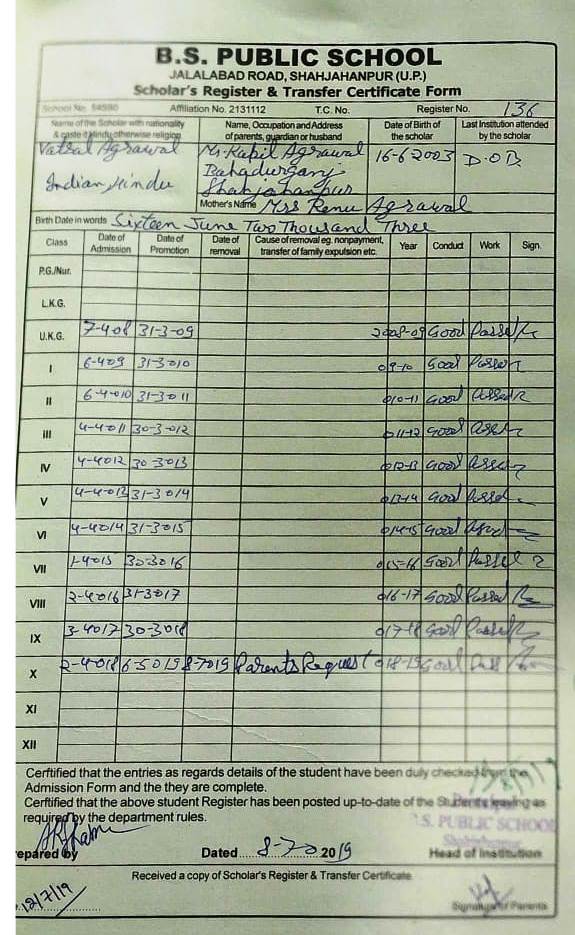 B.S. PUBLIC SCHOOL
JALALABAD ROAD, SHAHJAHANPUR (U.P.)
Scholar's Register & Transfer Certificate Form
School No. Affiliation No. 2131112 T.C. No. Register No. 136
Name of the Scholar with nationality & caste if Hindu otherwise religion
Name, Occupation and Address of parents, guardian or husband
Date of Birth of the scholar
Last Institution attended by the scholar
Vatsal Agrawal
Indian Hindu
Mr. Kapil Agrawal
Bahadurganj
Shahjahanpur
16-6-2003
D.O.B
Mother's Name Mrs Renu Agrawal
Birth Date in words Sixteen June Two Thousand Three
Class Date of Admission Date of Promotion Date of removal Cause of removal eg. nonpayment, transfer of family expulsion etc. Year Conduct Work Sign.
P.G./Nur.
L.K.G.
U.K.G. 7-408 31-3-09 2008-09 Good Passed
I 6-409 31-3010 09-10 Good Passed
II 6-4-010 31-3-011 010-11 Good Passed
III 4-4011 30-3-012 011-12 Good
IV 4-4012 30-3013 012-13 Good
V 4-4-013 31-3-014 013-14 Good
VI 4-4014 31-3015 014-15 Good
VII 1-4015 30-3016 015-16 Good Passed
VIII 2-4016 31-3017 016-17 Good Passed
IX 3-4017 30-3018 017-18 Good Passed
X 2-4018 6-5019 8-7019 Parents Request 018-19 Good
XI
XII
Cerftified that the entries as regards details of the student have been duly checked from the
Admission Form and the they are complete.
Cerftified that the above student Register has been posted up-to-date of the Students leaving as
required by the department rules.
epared by Dated 8-7- 2019 Head of Institution
B.S. PUBLIC SCHOOL
Received a copy of Scholar's Register & Transfer Certificate
12/7/19
Signature of Parents